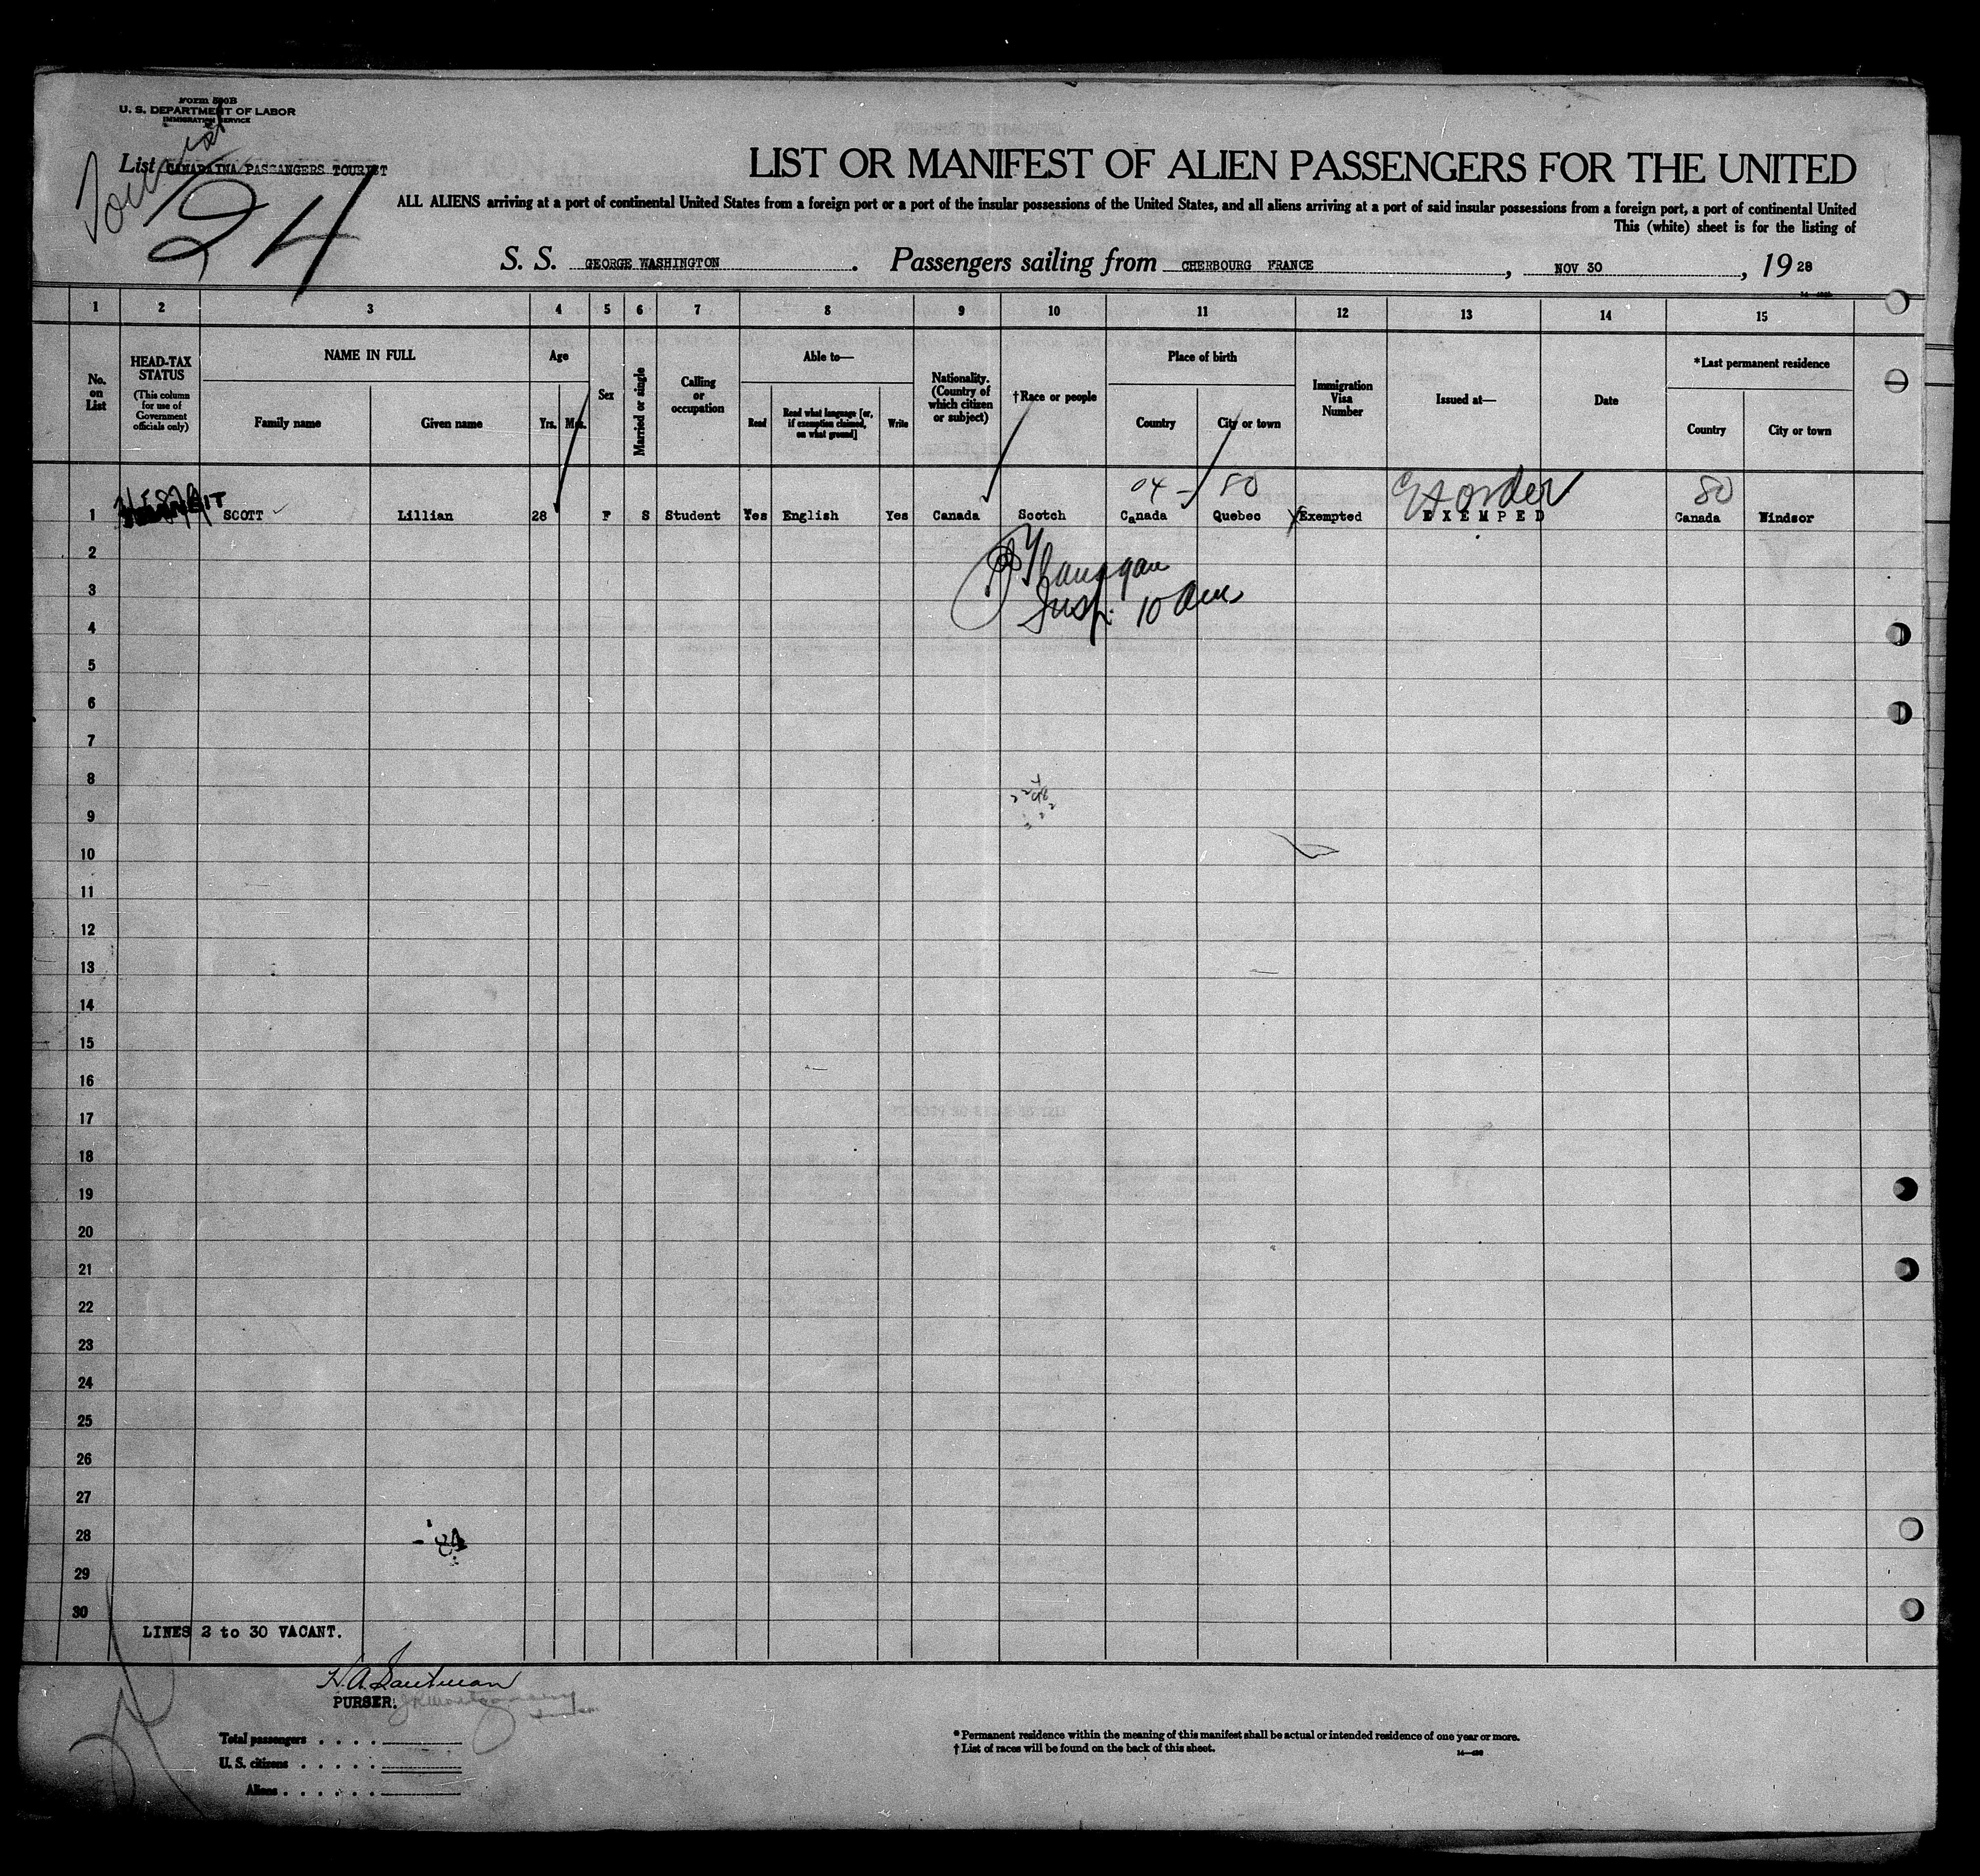 Form 500B
U. S. DEPARTMENT OF LABOR
IMMIGRATION SERVICE
List CANADAINA PASSANGERS TOURIST
Tourist
24
LIST OR MANIFEST OF ALIEN PASSENGERS FOR THE UNITED
ALL ALIENS arriving at a port of continental United States from a foreign port or a port of the insular possessions of the United States, and all aliens arriving at a port of said insular possessions from a foreign port, a port of continental United
This (white) sheet is for the listing of
S. S. GEORGE WASHINGTON. Passengers sailing from CHERBOURG FRANCE, NOV 30, 1928
1 2 3 4 5 6 7 8 9 10 11 12 13 14 15
No. on List
HEAD-TAX STATUS
(This column for use of Government officials only)
NAME IN FULL
Family name
Given name
Age
Yrs.
Mos.
Sex
Married or single
Calling or occupation
Able to—
Read
Read what language [or, if exemption claimed, on what ground]
Write
Nationality. (Country of which citizen or subject)
†Race or people
Place of birth
Country
City or town
Immigration Visa Number
Issued at—
Date
*Last permanent residence
Country
City or town
04 - 80
80
1 TRANSIT SCOTT Lillian 28 F S Student Yes English Yes Canada Scotch Canada Quebec Exempted EXEMPED Canada Windsor
Flanagan
Insp. 10 am
2
3
4
5
6
7
8
9
10
11
12
13
14
15
16
17
18
19
20
21
22
23
24
25
26
27
28
29
30
LINES 2 to 30 VACANT.
PURSER.
Total passengers
U. S. citizens
Aliens
* Permanent residence within the meaning of this manifest shall be actual or intended residence of one year or more.
† List of races will be found on the back of this sheet.